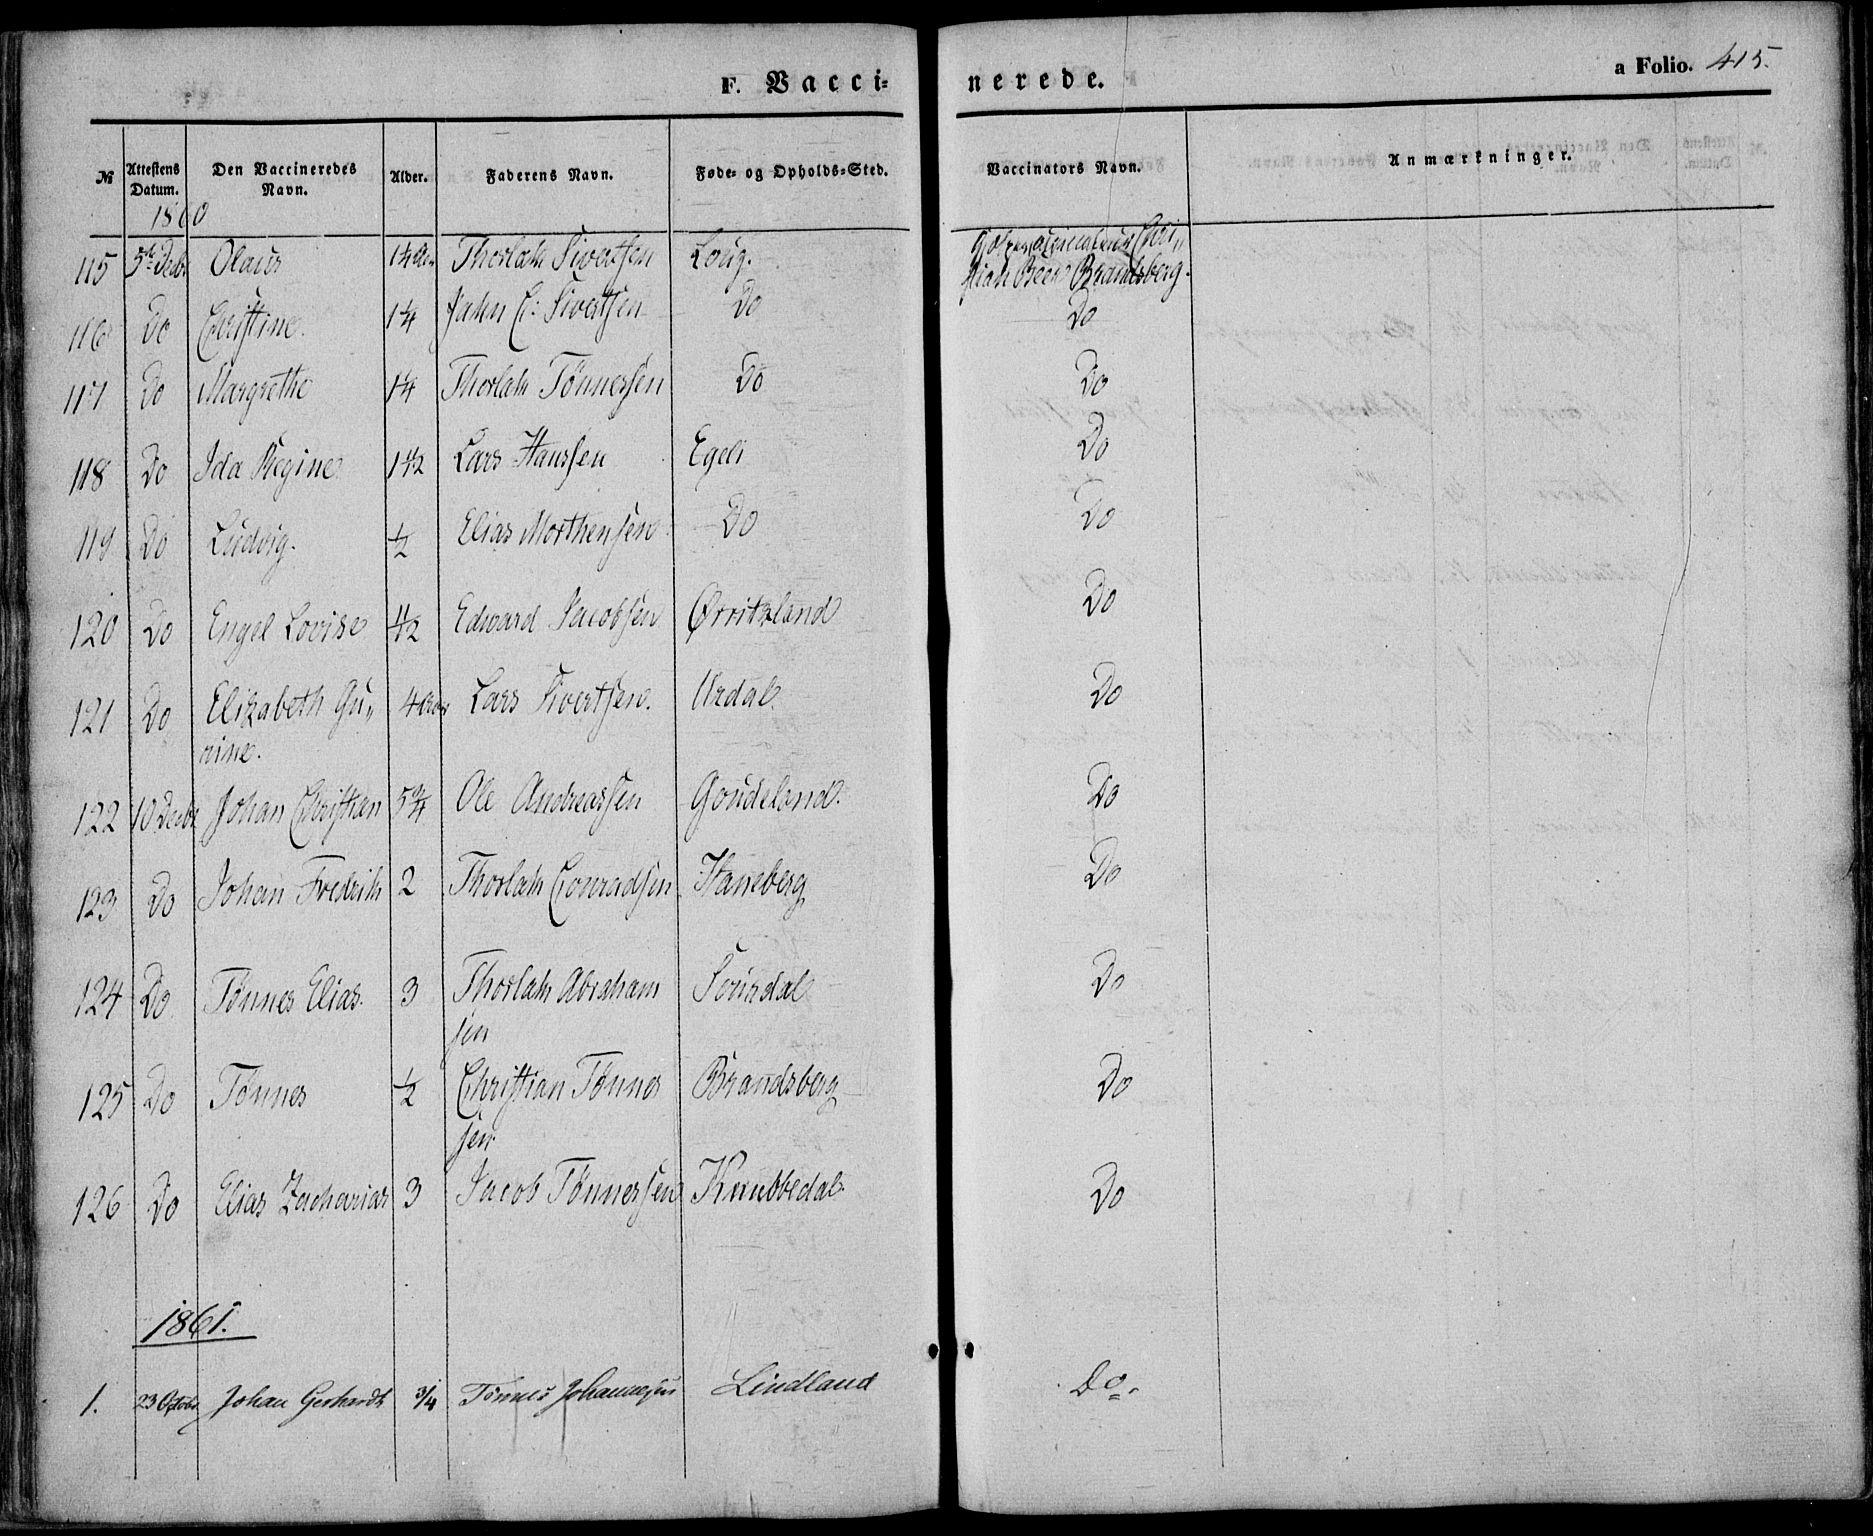 F. Vacci=
nerede.
a Folio. 415.
№ Attestens Datum. Den Vaccineredes Navn. Alder. Faderens Navn. Føde= og Opholds=Sted. Vaccinators Navn. Anmærkninger.
1860
115 5te Decbr Olaus 1¼ Thorlak Sivertsen Loug. Chri„
stian Brandsberg.
116 Do Christine. 1¼ Jakn C: Sivertsen Do Do
117 Do Margrethe 1¼ Thorlak Tønnessen Do Do
118 Do Ida Regine 1½ Lars Hanssen Egeli Do
119 Do Ludvig. ½ Elias Morthensen Do Do
120 Do Engel Lovise ½ Edward Jacobsen Ørritsland Do
121 Do Elizabeth Gu„ 4 Lars Sivertsen. Urdal Do
rine.
122 10 Decbr Johan Christian 5¾ Ole Andreassen Goudeland. Do
123 Do Johan Fredrik 2 Thorlak Conradsen Haneberg Do
124 Do Tønnes Elias. 3 Thorlak Abraham Souzdal Do
sen
125 Do Tønnes ½ Christian Tønnes Brandsberg Do
sen
126 Do Elias Zacharias 3 Jacob Tønnessen Knubbedal Do
1861.
1. 23 Octobr Johan Gerhardt 3/4 Tønnes Johannesen Lindland Do.